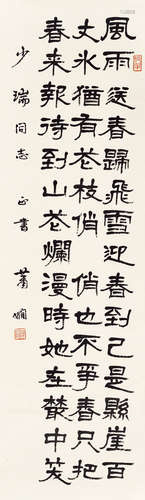 風雨送春歸飛雪迎春到已是縣崖百
丈氷猶有花枝俏俏也不爭春只把
春来報待到山花爛漫時她在叢中笑
少瑞同志 正書 蕭嫻